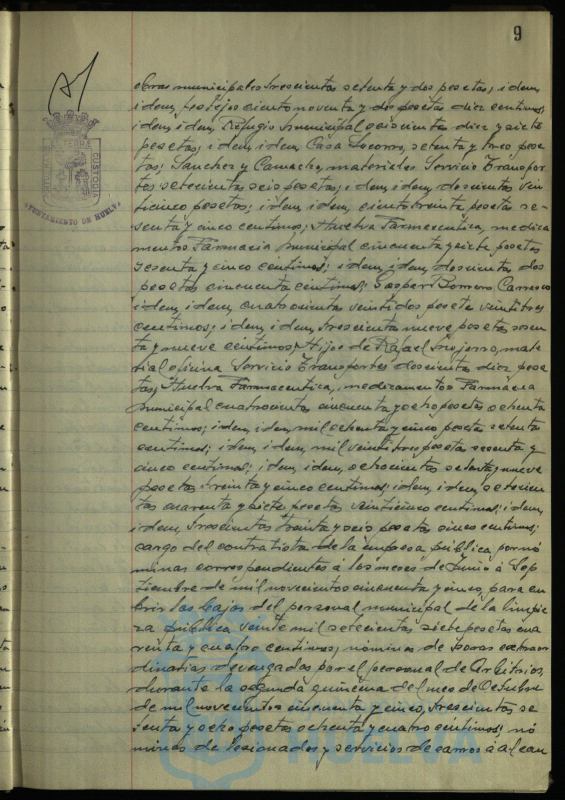 9
obras municipales trescientas setenta y dos pesetas; idem
idem, festejos ciento noventa y dos pesetas diez centimos;
idem idem, Refugio Municipal seiscientas diez y siete
pesetas; idem, idem Casa Socorro, setenta y tres pese
tas; Sanchez y Camacho, materiales Servicio Transpor-
tes setecientas seis pesetas; idem, idem, doscientas vein
ticinco pesetas; idem, idem, ciento treinta pesetas se-
senta y cinco centimos; Huelva Farmaceutica, medica
mentos Farmacia Municipal cincuenta y siete pesetas
sesenta y cinco centimos; idem, idem, doscientas dos
pesetas cincuenta centimos; Gaspar Borrero Carrasco
idem, idem, cuatrocientas veintidos peseta veintitres
centimos; idem, idem, trescienta nueve pesetas sesen
ta y nueve centimos; Hijos de Rafael, mate
rial oficina Servicio Transportes doscientas diez pese
tas; Huelva Farmaceutica, medicamentos Farmacia
Municipal cincuenta y ocho pesetas ochenta
centimos; idem, idem, mil ochenta y cinco peseta setenta
centimos; idem, idem, mil veintitres peseta sesenta y
cinco centimos; idem, idem, ochocientas setenta y nueve
pesetas treinta y cinco centimos; idem, idem, setecien
tas cuarenta y siete pesetas veinticinco centimos; idem,
idem, trescientas treinta y seis pesetas cinco centimos;
cargo del contratista de la limpieza pública, por nó
minas correspondientes á los meses de Junio á Sep
tiembre de mil novecientos cincuenta y cinco, para cu
brir las bajas del personal municipal de la limpie
za pública veinte mil setecientas siete pesetas cua
renta y cuatro centimos; nóminas de horas extraor
dinarias devengadas por el personal de Arbitrios,
durante la segunda quincena del mes de Octubre
de mil novecientos cincuenta y cinco, trescientas se
tenta y ocho pesetas ochenta y cuatro céntimos; nó
minas de lesionados y servicios de carros á alcan
AYUNTAMIENTO DE HUELVA
CUSTODIA
HUELVA